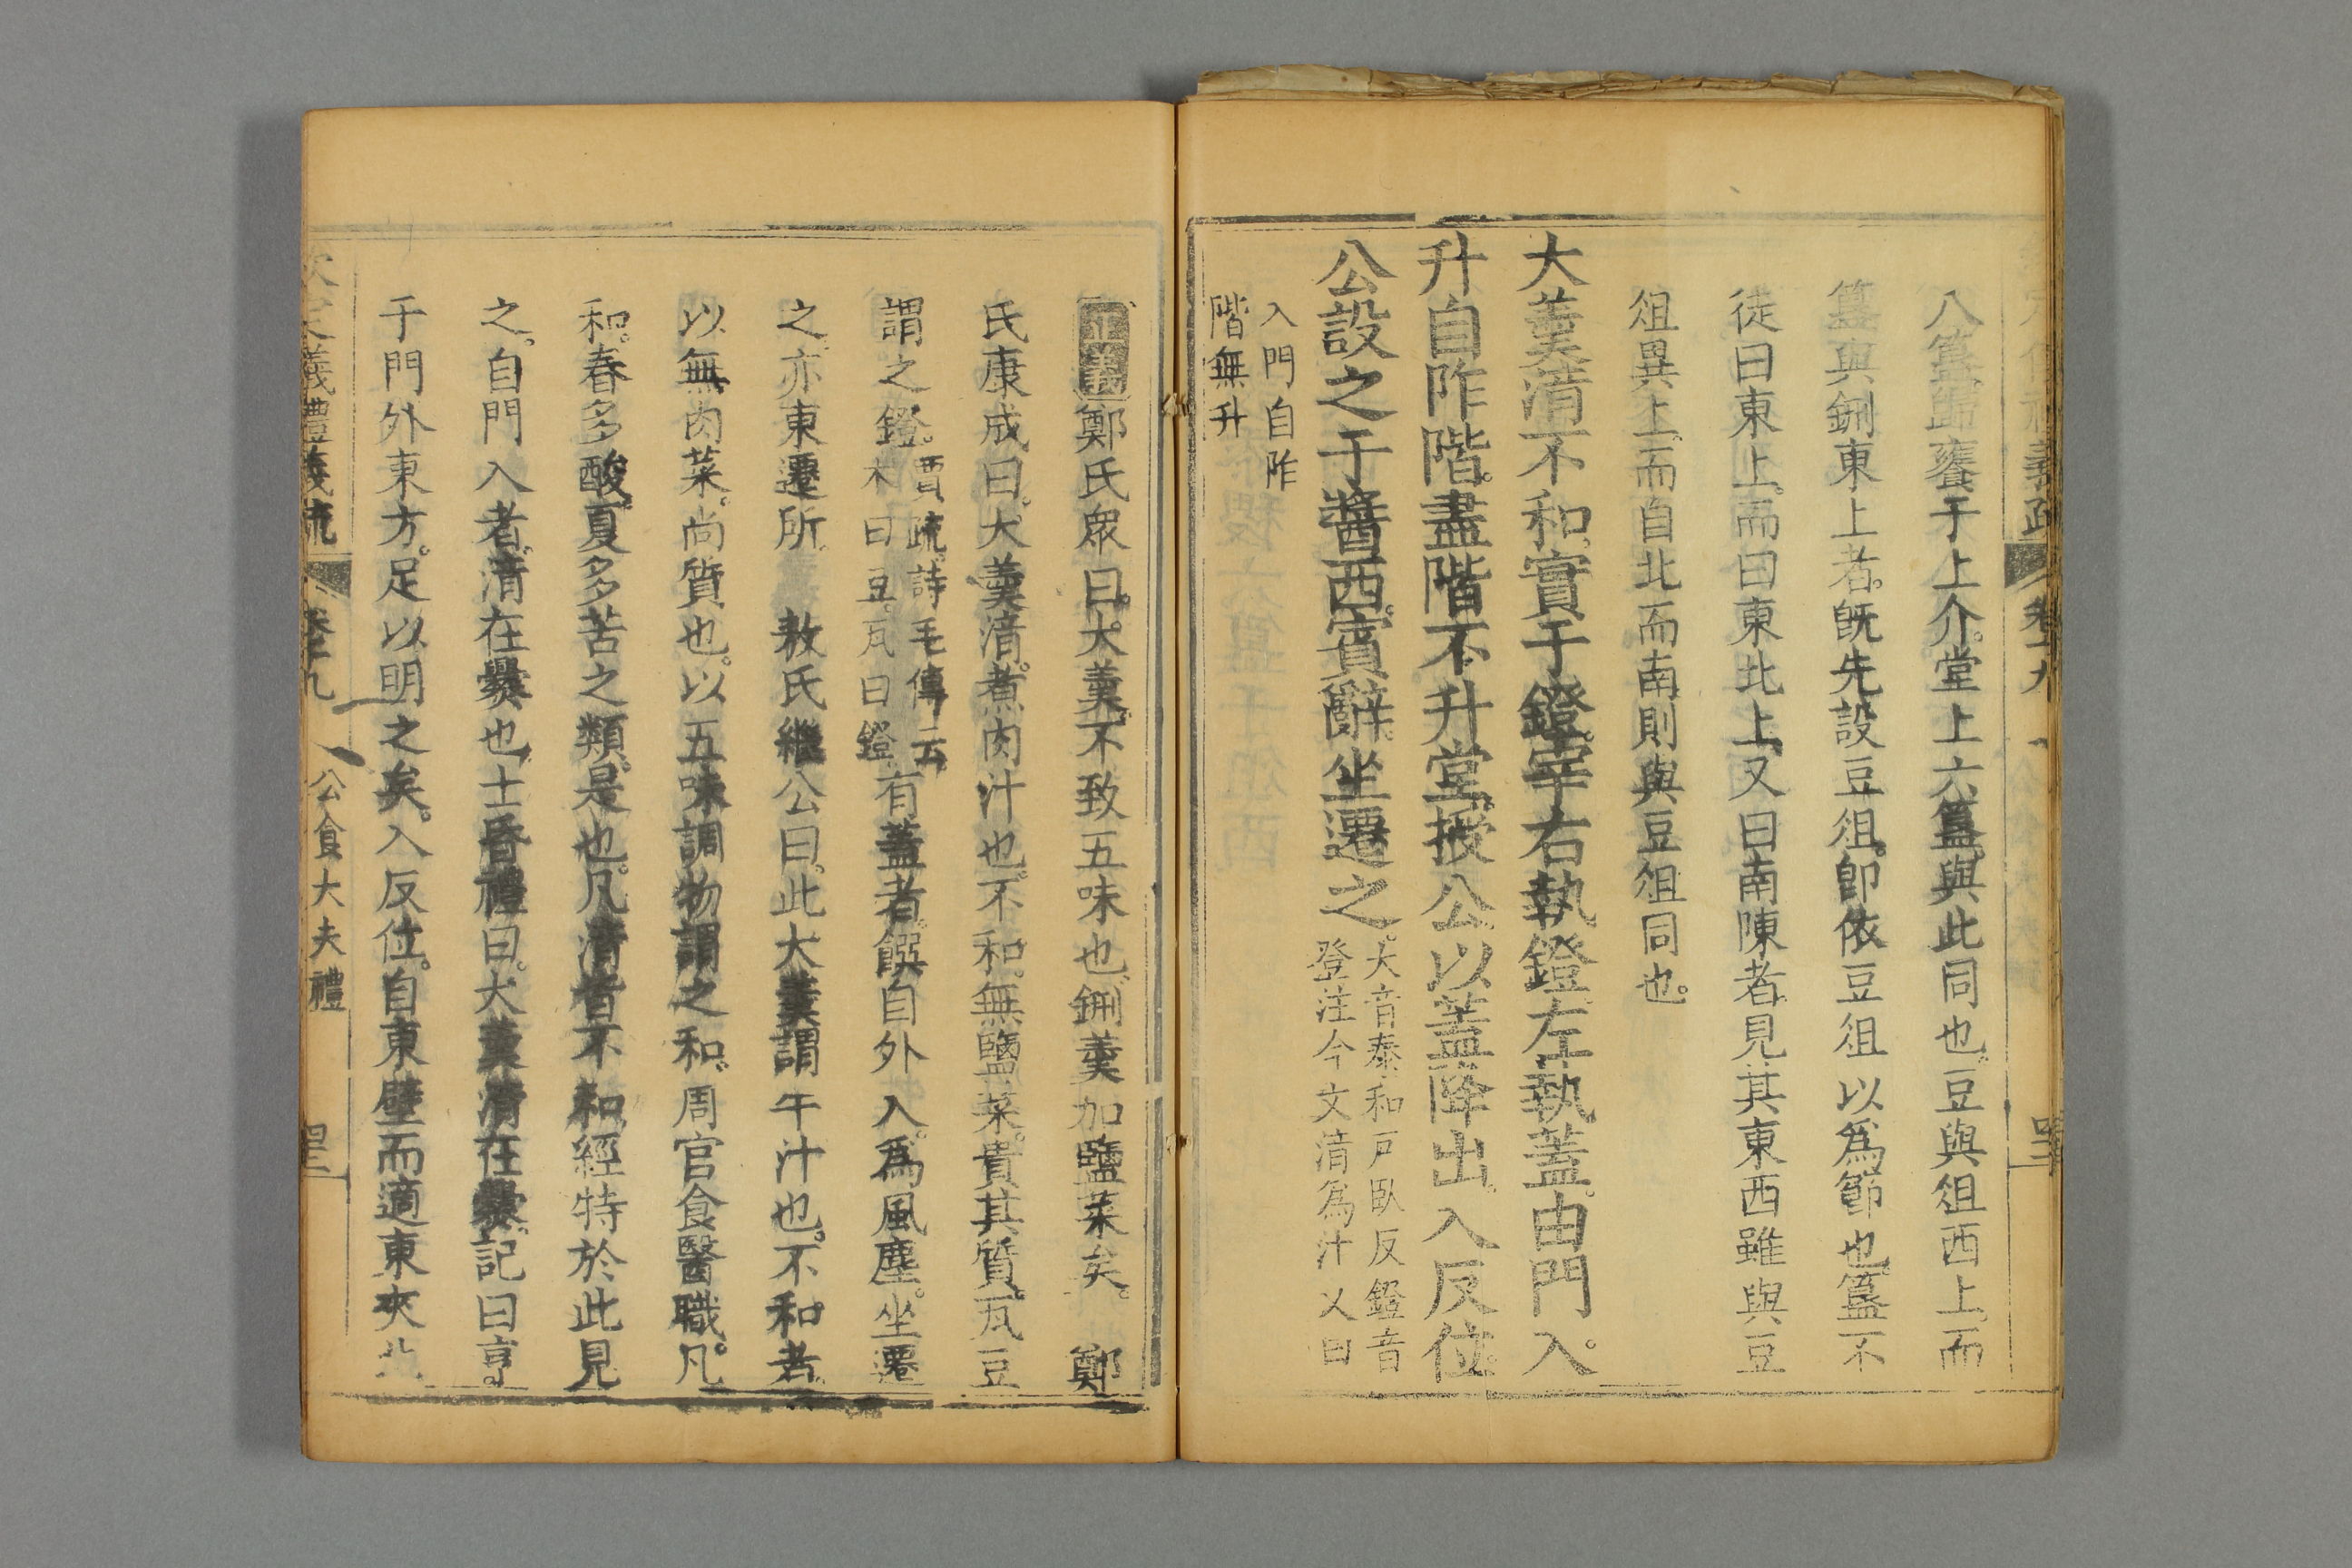 八簋歸饔于上介堂上六簋與此同也豆與俎西上而
簋與鉶東上者既先設豆俎即依豆俎以爲節也簋不
徒曰東上而曰東北上又曰南陳者見其東西雖與豆
俎異上而自北而南則與豆俎同也
大羹湆不和實于鐙宰右執鐙左執蓋由門入
升自阼階盡階不升堂授公以蓋降出入反位
公設之于醬西賓辭坐遷之大音泰和戸臥反鐙音
登注今文湆爲汁又曰
入門自阼
階無升
正義鄭氏眾曰大羹不致五味也鉶羹加鹽菜矣 鄭
氏康成曰大羹湆煮肉汁也不和無鹽菜貴其質瓦豆
謂之鐙賈疏詩毛傳云木曰豆瓦曰鐙有蓋者饌自外入爲風塵坐遷
之亦東遷所 敖氏繼公曰此大羹謂牛汁也不和者
以無肉菜尚質也以五味調物謂之和周官食醫職凡
和春多酸夏多苦之類是也凡湆皆不和經特於此見
之自門入者湆在爨也士昏禮曰大羹湆在爨記曰亨
于門外東方足以明之矣入反位自東壁而適東夾北
欽定儀禮義疏 卷十九 公食大夫禮